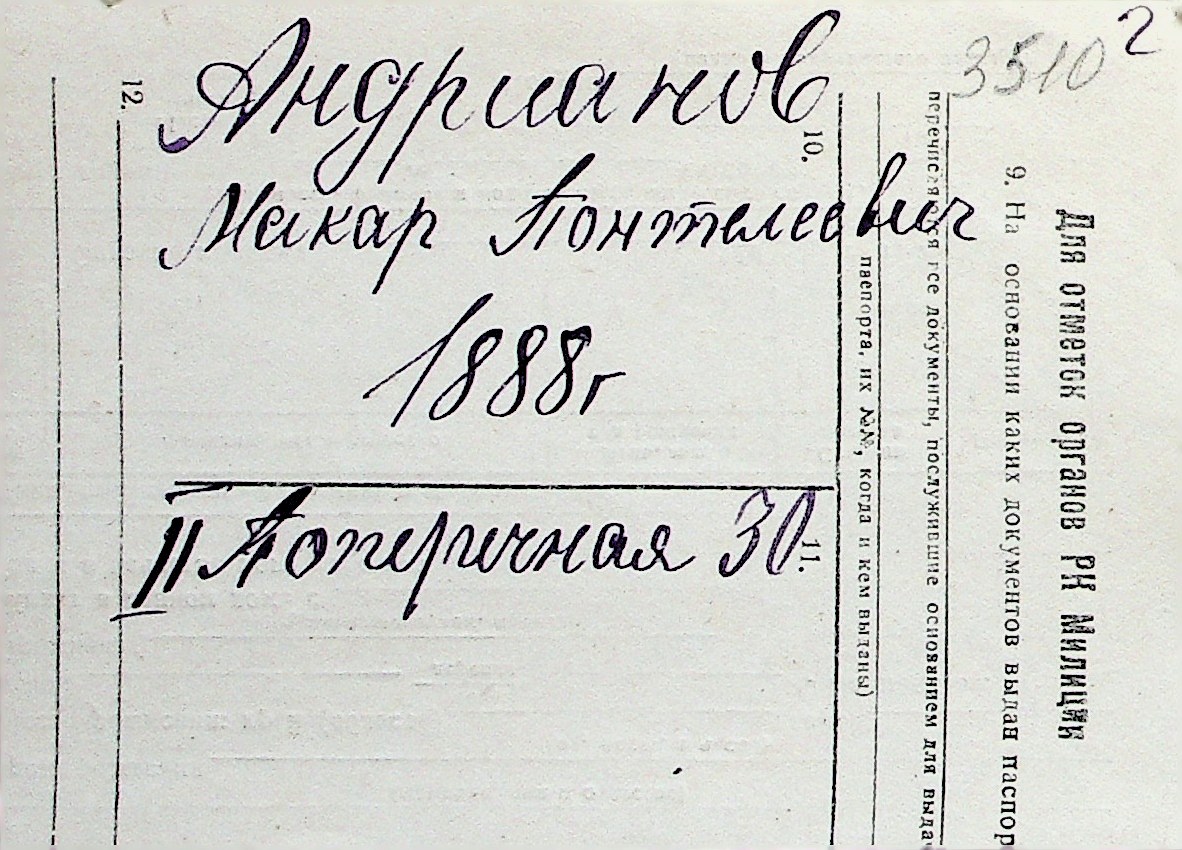 2
3510
Андрианов
Макар Понтелеевич
1888г
II Поперичная 30
Для отметок органов РК Милиции
9. На основании каких документов выдан паспор
перечисляются все документы, послужившие основанием для выда
паспорта, их №№, когда и кем выданы)
10.
11.
12.